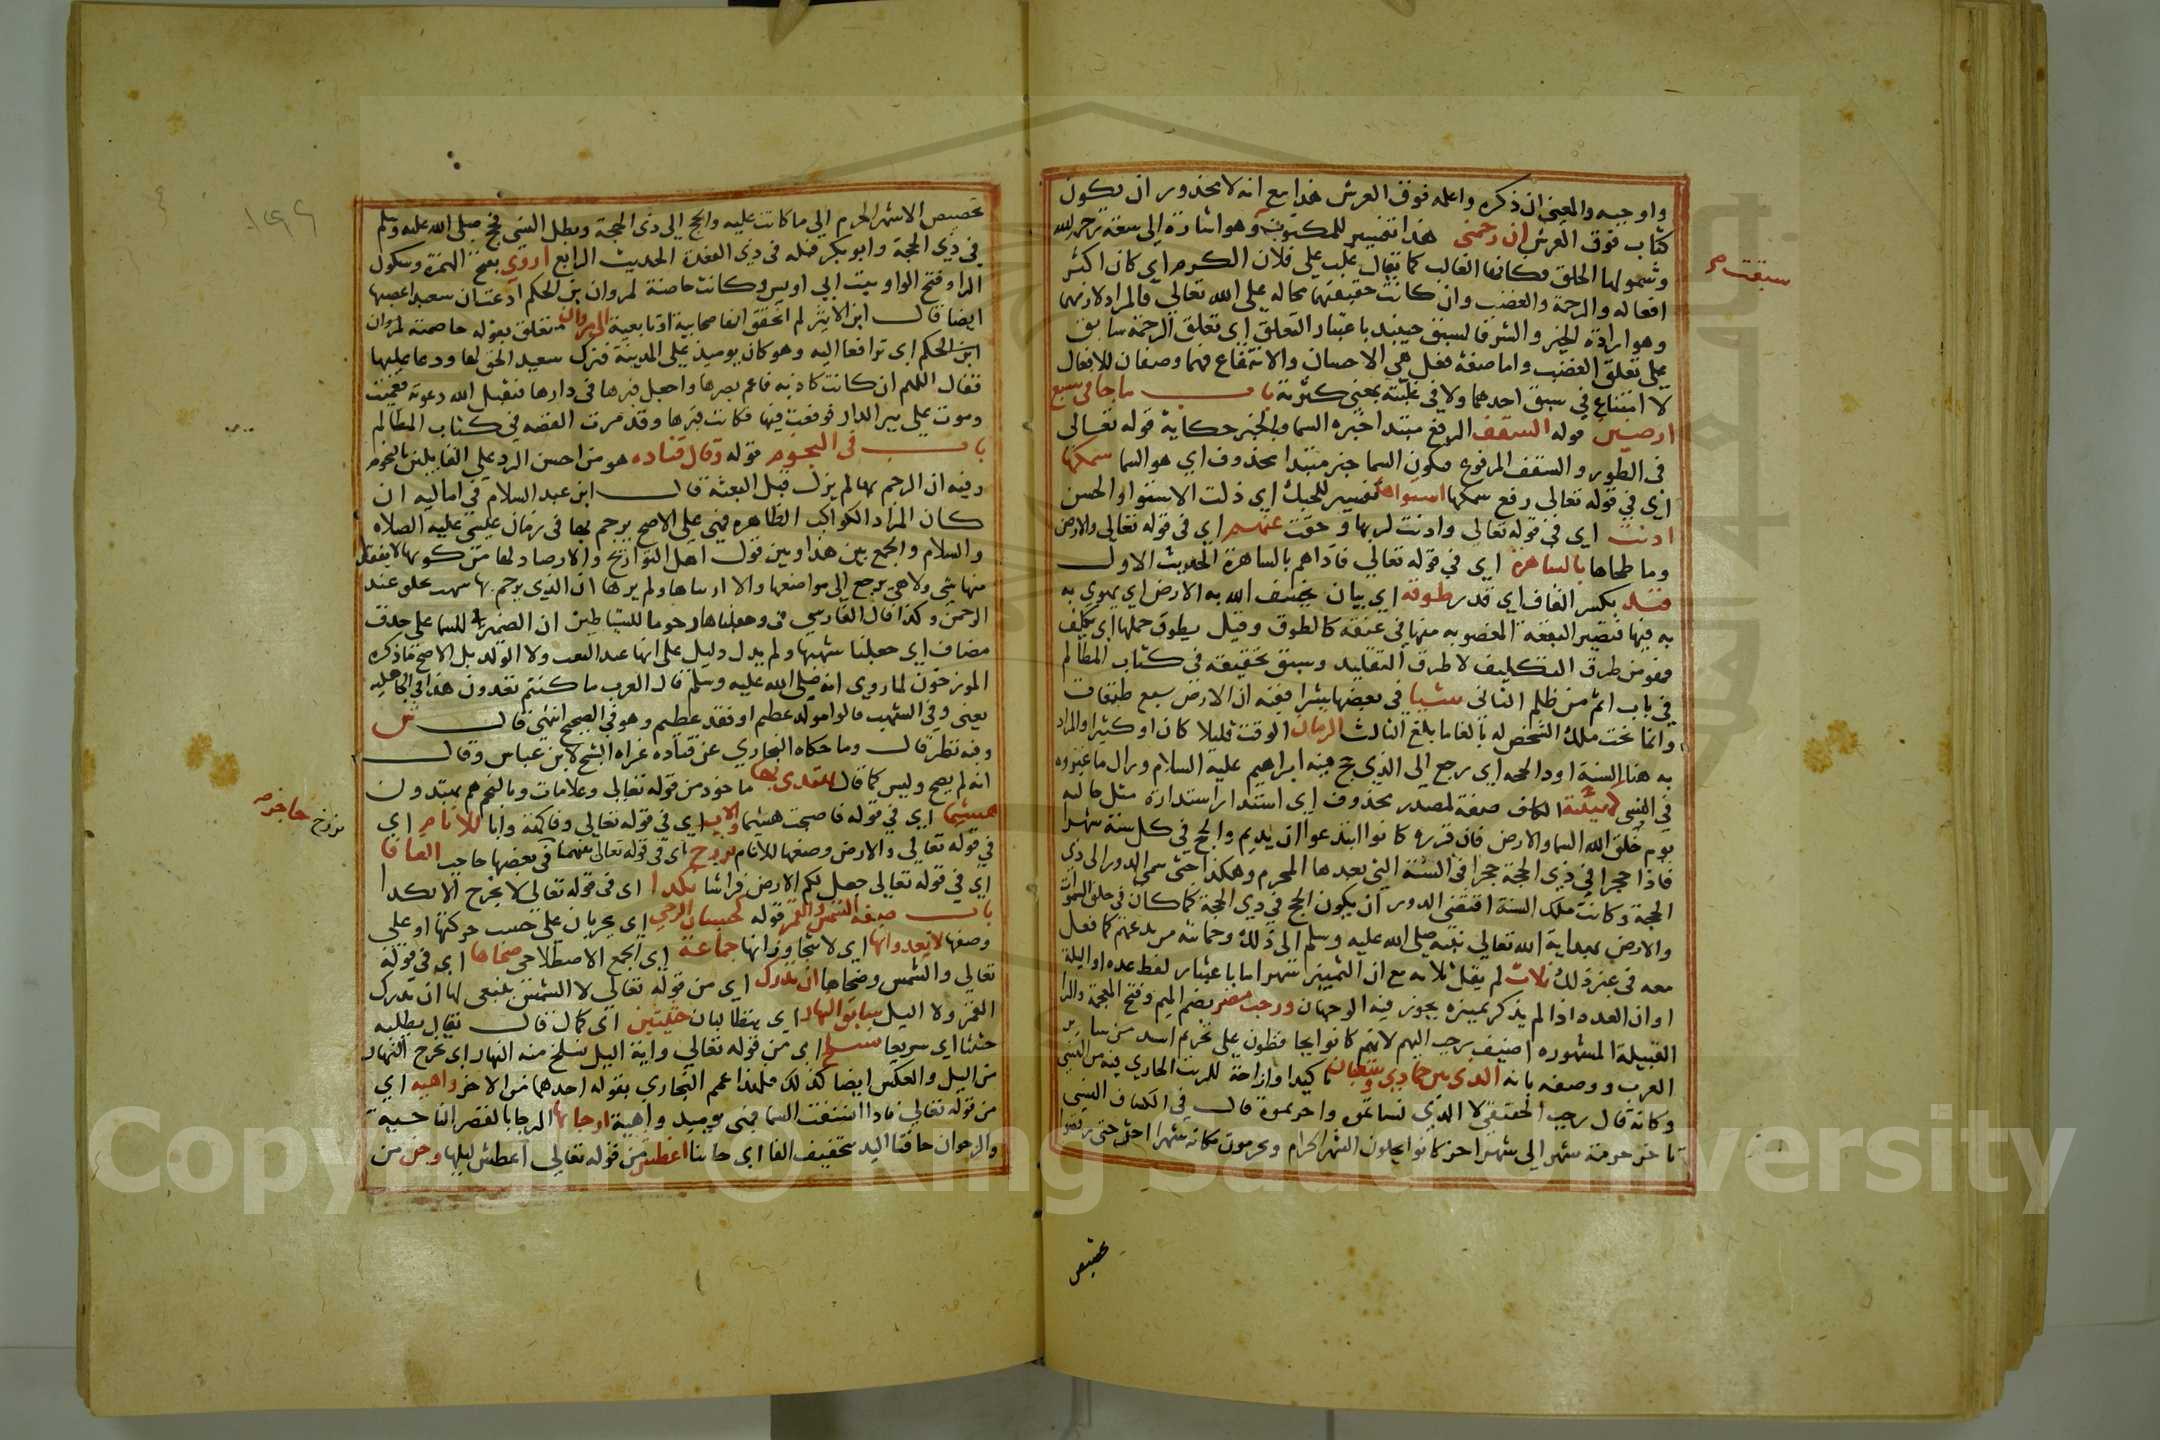 واوجبه والمعنى ان ذكره وعلمه فوق العرش هذا مع انه لا محذور ان يكون
كتاب فوق العرش ان رحمتى هذا تفسير للمكتوب وهو اشارة الى سعة رحمة الله
وشمولها الخلق فكانها الغالب كما يقال غلب على فلان الكرم اى كان اكثر
افعاله والرحمة والغضب وان كانت حقيقتهما محاله على الله تعالى فالمراد لازمهما
وهو ارادة الخير والشر فالسبق حينيذ باعتبار التعلق اى تعلق الرحمة سابق
على تعلق الغضب واما صفة فعل هى الاحسان والانتقام فهما وصفان للافعال
لا امتناع فى سبق احدهما ولا فى غلبته بمعنى كثرته باب ما جا فى سبع
ارضين قوله السقف الرفع مبتدا خبره السما والخبر حكاية قوله تعالى
فى الطور والسقف المرفوع فيكون السما خبر مبتدا محذوف اى هو السما سمكها
اى فى قوله تعالى رفع سمكها استواها تفسير للحبك اى ذات الاستوا والحسن
اذنت اى فى قوله تعالى واذنت لربها وحقت عنهم اى فى قوله تعالى والارض
وما طحاها بالساهرة اى فى قوله تعالى فاذا هم بالساهرة الحديث الاول
قيد بكسر القاف اى قدر طوقه اى بيان يخسف الله به الارض اى يهوى به
به فيها فتصير البقعة المغصوبه منها فى عنقه كالطوق وقيل يطوق حملها اى يكلف
فهو من طرق التكليف لا طرق التقليد وسبق تحقيقه فى كتاب المظالم
فى باب اثم من ظلم الثانى شيا فى بعضها شبرا ففيه ان الارض سبع طبقات
وانها تحت ملك الشخص له بالغا ما بلغ الثالث الزمان الوقت قليلا كان او كثيرا والمراد
به هنا السنة او ذا الحجه اى رجع الى الذى حج فيه ابراهيم عليه السلام وزال ما غيروه
فى النسى كهيئته الكاف صفة لمصدر محذوف اى استدار استدارة مثل حاليه
يوم خلق الله السما والارض فان قريش كانوا ابتدعوا ان يديم والحج فى كل سنة شهرا
فاذا حجوا فى ذى الحجة حجوا فى السنة التى بعدها المحرم وهكذا حتى سمى الدور الى ذى
الحجة وكانت ملك السنة اقتضى الدور ان يكون الحج فى ذى الحجة كما كان فى خلق السموات
والارض بهداية الله تعالى نبيه صلى الله عليه وسلم الى ذلك وحمايته من بدعتهم كما فعل
معه فى غير ذلك ثلاث لم يقل ثلاثه مع ان التمييز اشهر اما باعتبار لفظ عده او الليلة
او ان العدد اذا لم يذكر تمييزه يجوز فيه الوجهان ورجب مضر بضم الميم وفتح المعجمة والرا
القبيلة المشهوره اضيف رجب اليهم لانهم كانوا يحافظون على تحريم اشد من ساير
العرب ووصفه بانه الذى بين جمادى وشعبان تاكيدا وازاحة للريب الحادى فيه من النسى
وكانه قال رجب الحقيقى لا الذى تسا تموه واخرتموه قال فى الكشاف النسى
تاخر حرمة شهر الى شهر اخر كانوا يحلون الشهر الحرام ويحرمون مكانه شهرا اخر حتى رفضوا
سبقت صح
تخصيص
تخصيص الاشهر الحرم الى ما كانت عليه والحج الى ذى الحجة وبطل النسى فحج صلى الله عليه وسلم
فى ذى الحجة وابو بكر قبله فى ذى القعدة الحديث الرابع اروى بفتح الهمزة وسكون
الرا وفتح الواو بنت ابى اويس وكانت خاصمة لمروان بن الحكم ادعت ان سعيدا غصبها
ايضا قال ابن الاثير لم اتحقق انها صحابية او تابعية الى مروان متعلق بقوله خاصمته لمروان
ابن الحكم اى ترافعا اليه وهو كان يوميذ على المدينة فترك سعيد الحق لها ودعا عليها
فقال اللهم ان كانت كاذبه فاعم بصرها واجعل قبرها فى دارها فتقبل الله دعوته فعميت
ومرت على بير الدار فوقعت فيها فكانت قبرها وقد مرت القصه فى كتاب المظالم
باب فى النجوم قوله وقال قتاده هو من احسن الرد على القايلين بالنجوم
وفيه ان الرجم بها لم يزل قبل البعثة قال ابن عبد السلام فى اماليه ان
كان المراد الكواكب الظاهره فهى على الاصح يرجم بها فى زمان عيسى عليه الصلاه
والسلام والجمع بين هذا وبين قول اهل التواريخ والارصاد لها من كونها لا يفقد
منها شى ولا هى يرجع الى مواضعها والا ارساها ولم يرها ان الذى يرجم بها شهب تخلق عند
الرجم وكذا قال الفارسى فى وجعلناها رجوما للشياطين ان الضمير للسما على حذف
مضاف اى جعلنا شهبها ولم يدل دليل على انها عبد البعث ولا الولد بل الاصح ما ذكره
المورخون لما روى انه صلى الله عليه وسلم قال العرب ما كنتم تعدون هذا فى الجاهليه
يعنى وفى الشهب قالوا مولد عظيم او فقد عظيم وهو فى الصحيح انتهى قال ش
وفيه نظر قال وما حكاه البخارى عن قتاده عزاه الشيخ لابن عباس وقال
انه لم يصح وليس كما قال يهتدى بها ماخوذ من قوله تعالى وعلامات وبالنجم هم يهتدون
هشيما اى فى قوله فاصبحت هشيما والاب اى فى قوله تعالى وفاكهة وابا للانام اى
فى قوله تعالى والارض وضعها للانام برزخ اى فى قوله تعالى بينهما فى بعضها حاجب الفافا
اى فى قوله تعالى جعل لكم الارض فراشا نكدا اى فى قوله تعالى لا يخرج الا نكدا
باب صفة الشمس والقمر قوله كحسبان الرحى اى يجريان على حسب حركتها او على
وضعها لا يعدوانها اى لا يتجاوزانها جماعة اى الجمع الاصطلاحى ضحاها اى فى قوله
تعالى والشمس وضحاها ان تدرك اى من قوله تعالى لا الشمس ينبغى لها ان تدرك
القمر ولا اليل سابق النهار اى يتطالبان حثيثين اى كما قال تعالى يطلبه
حثيثا اى سريعا نسلخ اى من قوله تعالى واية اليل نسلخ منه النهار اى نخرج النهار
من اليل والعكس ايضا كذلك فلهذا عمم البخارى بقوله احدهما من الاخر واهيه اى
من قوله تعالى فاذا انشقت السما فهى يوميذ واهية ارجايها الرجا بالقصر الناحية
والرجوان حافتا البير بتخفيف الفا اى جانبا اغطش من قوله تعالى اغطش ليلها وجن من
برزخ حاجز صح